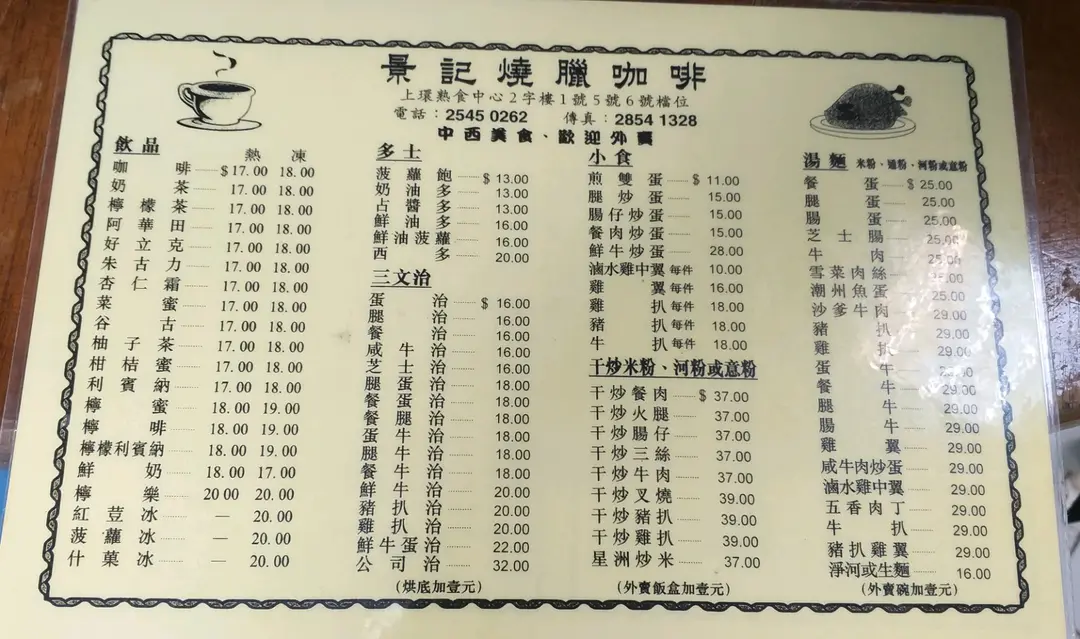 景記燒臘咖啡
上環熱食中心2字樓1號5號6號檔位
電話：2545 0262 傳真：2854 1328
中西美食、歡迎外賣
飲品 熱 凍
咖啡 $17.00 18.00
奶茶 17.00 18.00
檸檬茶 17.00 18.00
阿華田 17.00 18.00
好立克 17.00 18.00
朱古力 17.00 18.00
杏仁霜 17.00 18.00
菜蜜 17.00 18.00
谷古 17.00 18.00
柚子茶 17.00 18.00
柑桔蜜 17.00 18.00
利賓納 17.00 18.00
檸蜜 18.00 19.00
檸啡 18.00 19.00
檸檬利賓納 18.00 19.00
鮮奶 18.00 17.00
檸樂 20 00 20.00
紅荳冰 — 20.00
菠蘿冰 — 20.00
什菓冰 — 20.00
多士
菠蘿飽 $ 13.00
奶油多 13.00
占醬多 13.00
鮮油多 16.00
鮮油菠蘿 16.00
西多 20.00
三文治
蛋治 $ 16.00
腿治 16.00
餐治 16.00
咸牛治 16.00
芝士治 16.00
腿蛋治 18.00
餐蛋治 18.00
餐腿治 18.00
蛋牛治 18.00
腿牛治 18.00
餐牛治 18.00
鮮牛治 20.00
豬扒治 20.00
雞扒治 20.00
鮮牛蛋治 22.00
公司治 32.00
(烘底加壹元)
小食
煎雙蛋 $ 11.00
腿炒蛋 15.00
腸仔炒蛋 15.00
餐肉炒蛋 15.00
鮮牛炒蛋 28.00
滷水雞中翼 每件 10.00
雞翼 每件 16.00
雞扒 每件 18.00
豬扒 每件 18.00
牛扒 每件 18.00
干炒米粉、河粉或意粉
干炒餐肉 $ 37.00
干炒火腿 37.00
干炒腸仔 37.00
干炒三絲 37.00
干炒牛肉 37.00
干炒叉燒 39.00
干炒豬扒 39.00
干炒雞扒 39.00
星洲炒米 37.00
(外賣飯盒加壹元)
湯麵 米粉、通粉、河粉或意粉
餐蛋 $ 25.00
腿蛋 25.00
腸蛋 25.00
芝士腸 25.00
牛肉 25.00
雪菜肉絲
潮州魚蛋 25.00
沙爹牛肉 29.00
豬扒 29.00
雞扒 29.00
蛋牛 29.00
餐牛 29.00
腿牛 29.00
腸牛 29.00
雞翼 29.00
咸牛肉炒蛋 29.00
滷水雞中翼 29.00
五香肉丁 29.00
牛扒 29.00
豬扒雞翼 29.00
淨河或生麵 16.00
(外賣碗加壹元)